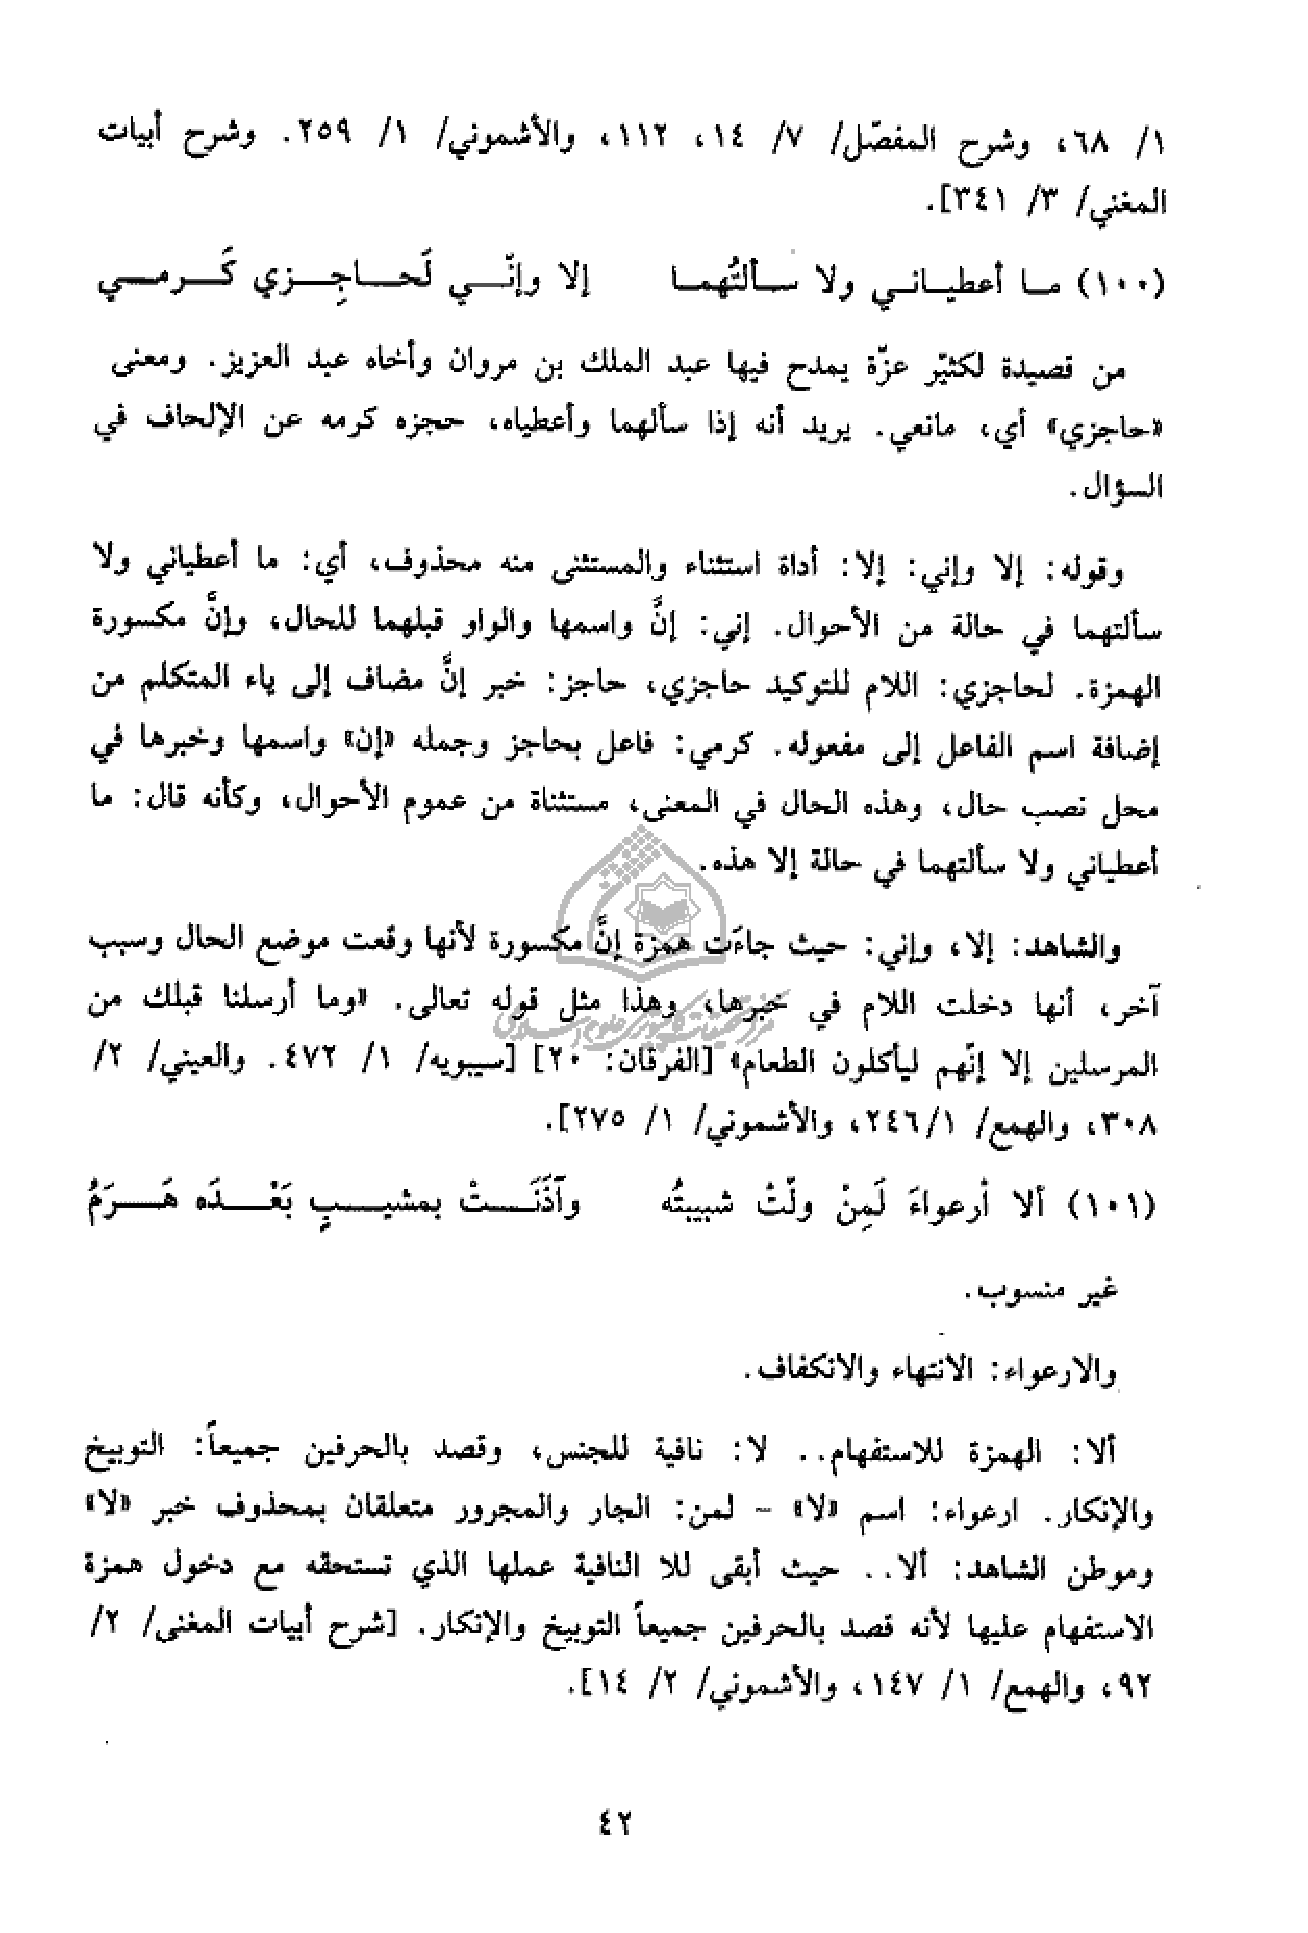 ١/ ٦٨، وشرح المفصّل/ ٧/ ١٤، ١١٢، والأشموني/ ١/ ٢٥٩. وشرح أبيات
المغني/ ٣/ ٣٤١].
(١٠٠) مـا أعطيـانـي ولا سـألتُهمـا إلا وإنّـي لَحـاجِـزي كَـرمـي
من قصيدة لكثيّر عزّة يمدح فيها عبد الملك بن مروان وأخاه عبد العزيز. ومعنى
«حاجزي» أي، مانعي. يريد أنه إذا سألهما وأعطياه، حجزه كرمه عن الإلحاف في
السؤال.
وقوله: إلا وإني: إلا: أداة استثناء والمستثنى منه محذوف، أي: ما أعطياني ولا
سألتهما في حالة من الأحوال. إني: إنَّ واسمها والواو قبلهما للحال، وإنَّ مكسورة
الهمزة. لحاجزي: اللام للتوكيد حاجزي، حاجز: خبر إنَّ مضاف إلى ياء المتكلم من
إضافة اسم الفاعل إلى مفعوله. كرمي: فاعل بحاجز وجمله «إن» واسمها وخبرها في
محل نصب حال، وهذه الحال في المعنى، مستثناة من عموم الأحوال، وكأنه قال: ما
أعطياني ولا سألتهما في حالة إلا هذه.
والشاهد: إلا، وإني: حيث جاءَت همزة إنَّ مكسورة لأنها وقعت موضع الحال وسبب
آخر، أنها دخلت اللام في خبرها، وهذا مثل قوله تعالى. «وما أرسلنا قبلك من
المرسلين إلا إنّهم ليأكلون الطعام» [الفرقان: ٢٠] [سيبويه/ ١/ ٤٧٢. والعيني/ ٢/
٣٠٨، والهمع/ ١/٢٤٦، والأشموني/ ١/ ٢٧٥].
(١٠١) ألا أرعواءَ لَمِنْ ولّتْ شبيبتُه وآذَنَـتْ بمشيـبٍ بَعْـدَه هَـرَمُ
غير منسوب.
والارعواء: الانتهاء والانكفاف.
ألا: الهمزة للاستفهام.. لا: نافية للجنس، وقصد بالحرفين جميعاً: التوبيخ
والإنكار. ارعواء: اسم «لا» - لمن: الجار والمجرور متعلقان بمحذوف خبر «لا»
وموطن الشاهد: ألا.. حيث أبقى للا النافية عملها الذي تستحقه مع دخول همزة
الاستفهام عليها لأنه قصد بالحرفين جميعاً التوبيخ والإنكار. [شرح أبيات المغنى/ ٢/
٩٢، والهمع/ ١/ ١٤٧، والأشموني/ ٢/ ١٤].
٤٢